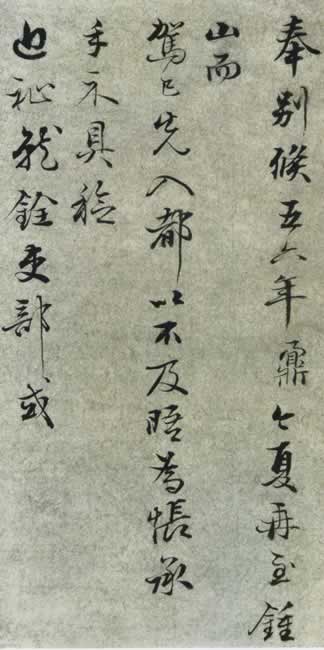 奉别倏五六年鼐今夏再至鍾
山而
駕已先入都以不及晤為悵承
手示具稔
近祉就銓吏部或